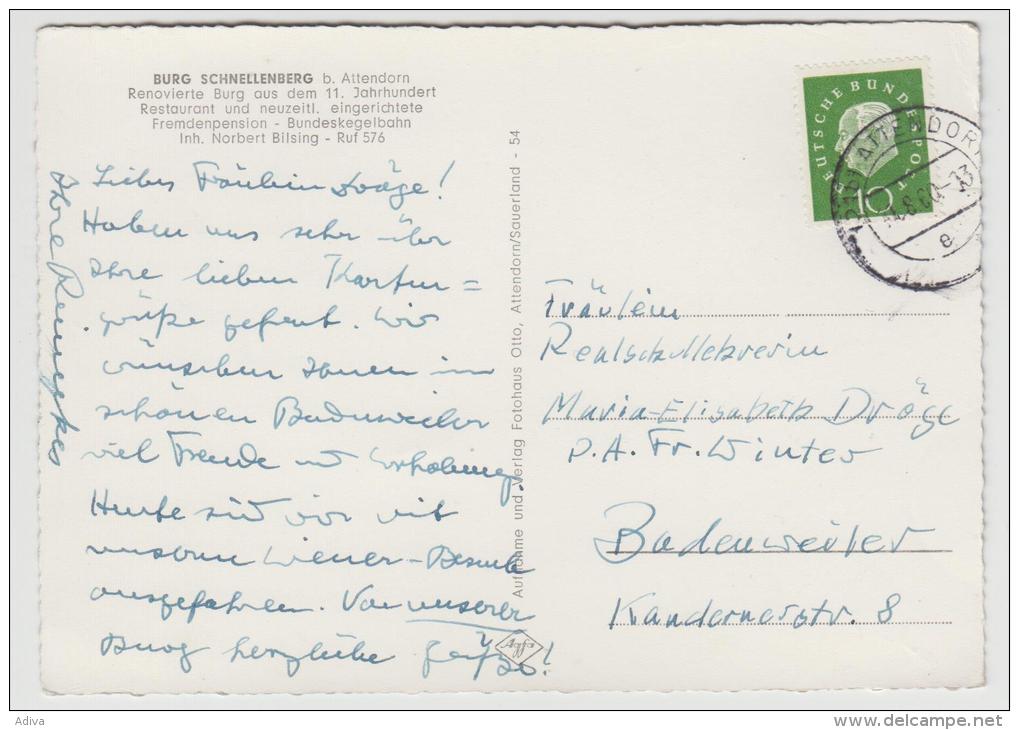 BURG SCHNELLENBERG b. Attendorn
Renovierte Burg aus dem 11. Jahrhundert
Restaurant und neuzeitl. eingerichtete
Fremdenpension - Bundeskegelbahn
Inh. Norbert Bilsing - Ruf 576
Liebes Fräulein Dröge!
Haben uns sehr über
Ihre lieben Karten=
grüße gefreut. Wir
wünschen Ihnen im
schönen Badenweiler
viel Freude und Erholung.
Heute sind wir mit
unserem Wiener-Besuch
ausgefahren. Von unserer
Burg herzliche Grüße!
Ihre
Aufnahme und Verlag Fotohaus Otto, Attendorn/Sauerland - 54
Agfa
DEUTSCHE BUNDESPOST
10
ATTENDORN
8.60-13
e
Fräulein
Realschullehrerin
Maria-Elisabeth Dröge
p.A. Fr. Winter
Badenweiler
Kandernerstr. 8
Adiva
www.delcampe.net